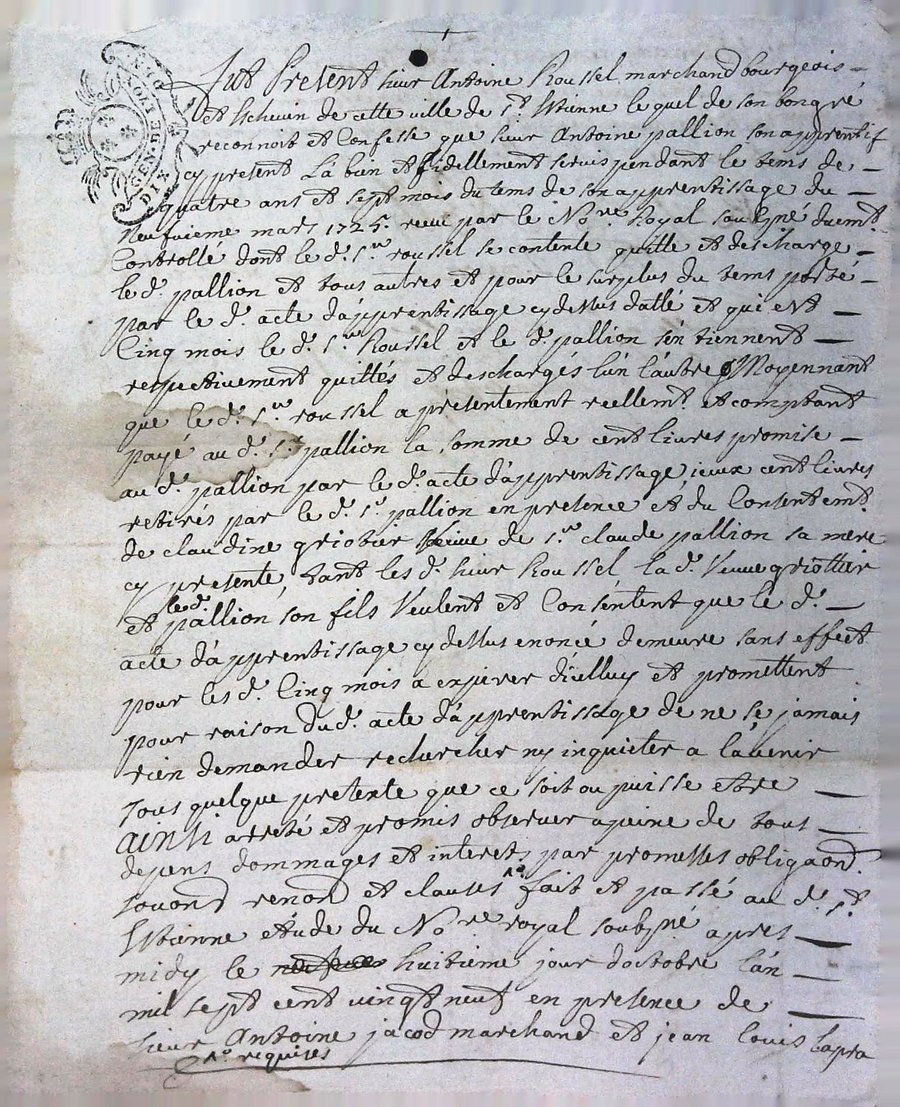 GEN. DE LYON
DIX DEN
Fut Present sieur Antoine Roussel marchand bourgeois
et Echevin de cette ville de st. Etienne le quel de son bongré
reconnoit et Confesse que sieur Antoine pallion son apprentif
cy present La bien et fidellement servis pendant le tems de
quatre ans et sept mois du tems de son apprentissage du
Neufvieme mars 1725. receu par le No.re Royal soubné duemt.
Controllé dont le d. sr. roussel se contente quitte et descharge
le d. pallion et tous autres et pour le surplus du tems porté
par le d. acte d'apprentissage cy dessus datté et qui est
Cinq mois le d. sr. Roussel et le d. pallion s'en tiennent
respectivement quittés et deschargés l'un l'autre Moyennant
que le d. sr. roussel a presentement reellemt. et comptant
payé au d. sr. pallion la somme de cent livres promise
au d. pallion par le d. acte d'apprentissage, iceux cent livres
retirés par le d. sr. pallion en presence et du Consentemt.
de claudine griotier veuve de sr. claude pallion sa mere
cy presente, tant les d. sieur Roussel la d. Veuve griottier
le d.
et pallion son fils Veulent et Consentent que le d.
acte d'apprentissage cy dessus enoncé demeure sans effect
pour les d. Cinq mois a expirer d'icelluy et promettent
pour raison du d. acte d'apprentissage de ne se jamais
rien demander rechercher ny inquieter a l'avenir
sous quelque pretexte que ce soit ou puisse etre
ainsi arreté et promis observer a peine de tous
depens dommages et interets par promesses obligaons
renons et clauses fait et passé au d. st.
Etienne étude du No.re royal soubné apres
midy le huitieme jour d'octobre l'an
mil sept cent vingt neuf en presence de
sieur Antoine jacod marchand et jean louis lapra
requises